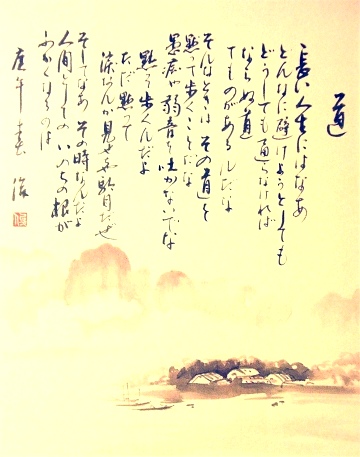 道
長い人生にはなあ
どんなに避けようとしても
どうしても通らなければ
ならぬ道
てものがあるんだな
そんなときはその道を
黙って歩くことだな
愚痴や弱音を吐かないでな
黙って歩くんだよ
ただ黙って
涙なんか見せちゃ駄目だぜ
そしてなあその時なんだよ
人間としてのいのちの根が
ふかくなるのは
庚午春